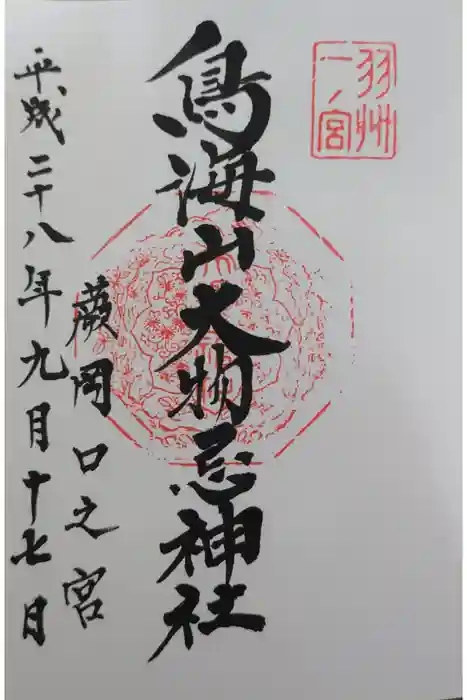 羽州
一ノ宮
鳥海山大物忌神社
蕨岡口之宮
平成二十八年九月十七日